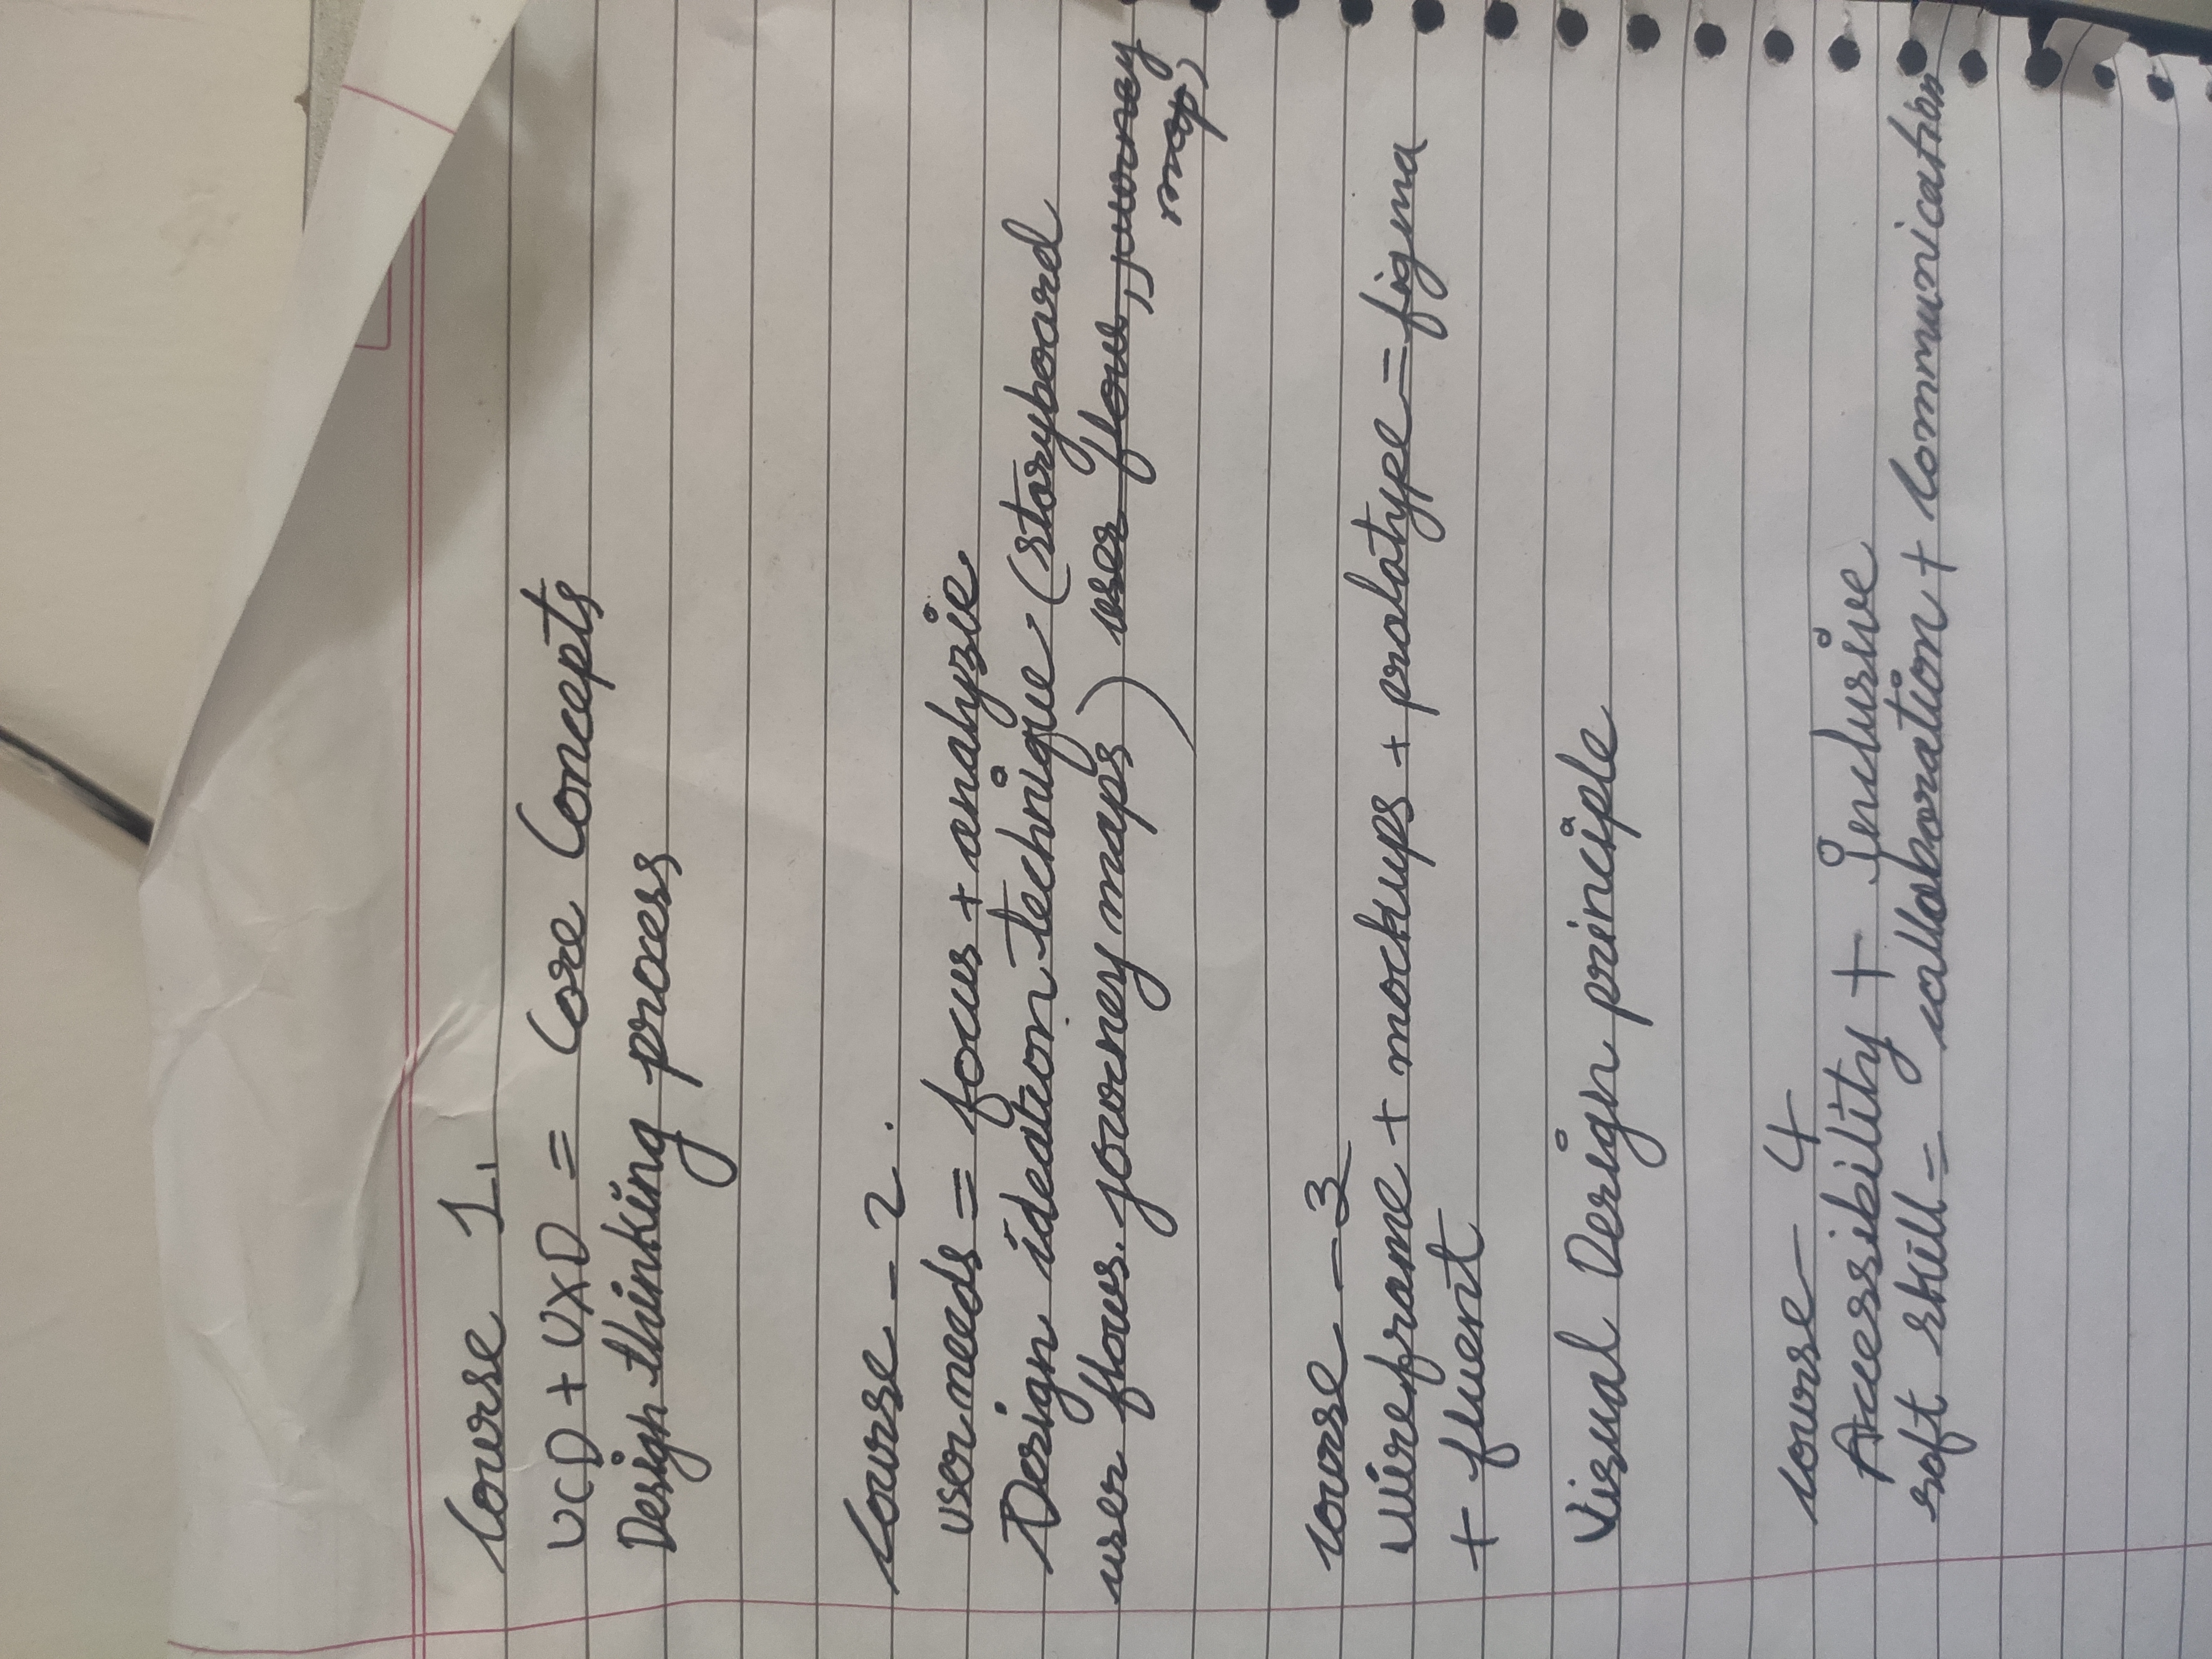 Course 1.
UCD + UXD = Core Concepts
Design thinking process
Course - 2.
user needs = focus + analyzie
Design ideation technique (storyboard
user flows. journey maps) user flows, journey
map)
course - 3
wireframe + mockups + prolatype = figma
+ fluent
Visual Design principle
course - 4
Accessibility + Inclusive
soft skill = collaboration + Communication